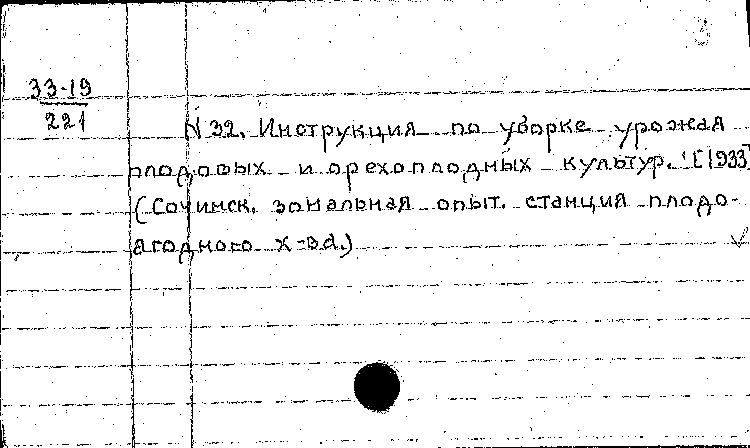 33-19
221
N 32. Инструкция по уборке урожая
плодовых и орехоплодных культур. [1933]
(Сочинск. зональная опыт. станция плодо-
ягодного х-ва.)